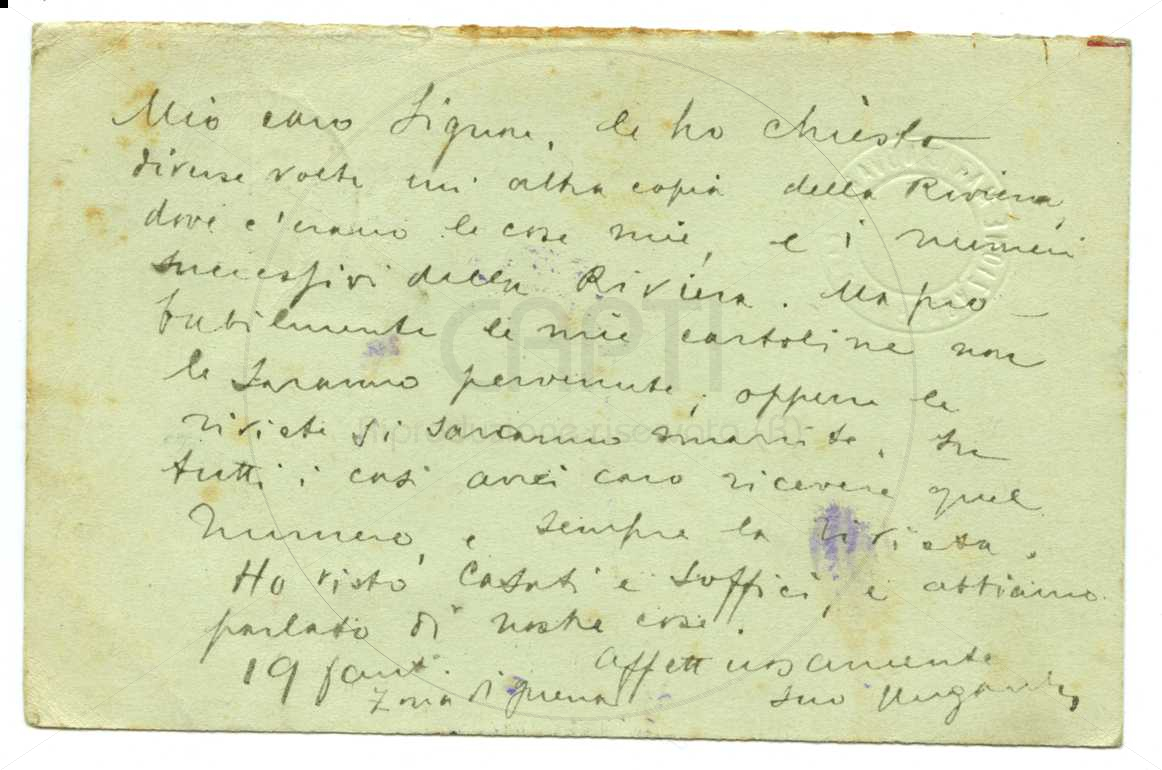 Mio caro Signore, le ho chiesto
diverse volte un'altra copia della Riviera,
dove c'erano le cose mie, e i numeri
successivi della Riviera. Ma pro-
babilmente le mie cartoline non
le saranno pervenute, oppure le
riviste si saranno smarrite. In
tutti i casi avrei caro ricevere quel
numero, e sempre la rivista.
Ho visto Casati e Soffici, e abbiamo
parlato di nostre cose.
Affettuosamente
19 fant.
Zona di guerra
suo Ungaretti
CAPTI
Riproduzione riservata (R)